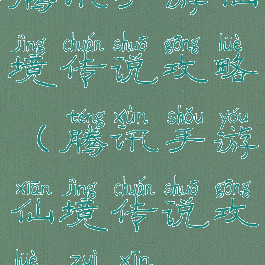 jìng chuán shuō gōng lüè
境传说攻略
téng xùn shǒu yóu
（腾讯手游
xiān jìng chuán shuō gōng
仙境传说攻
lüè zuì xīn